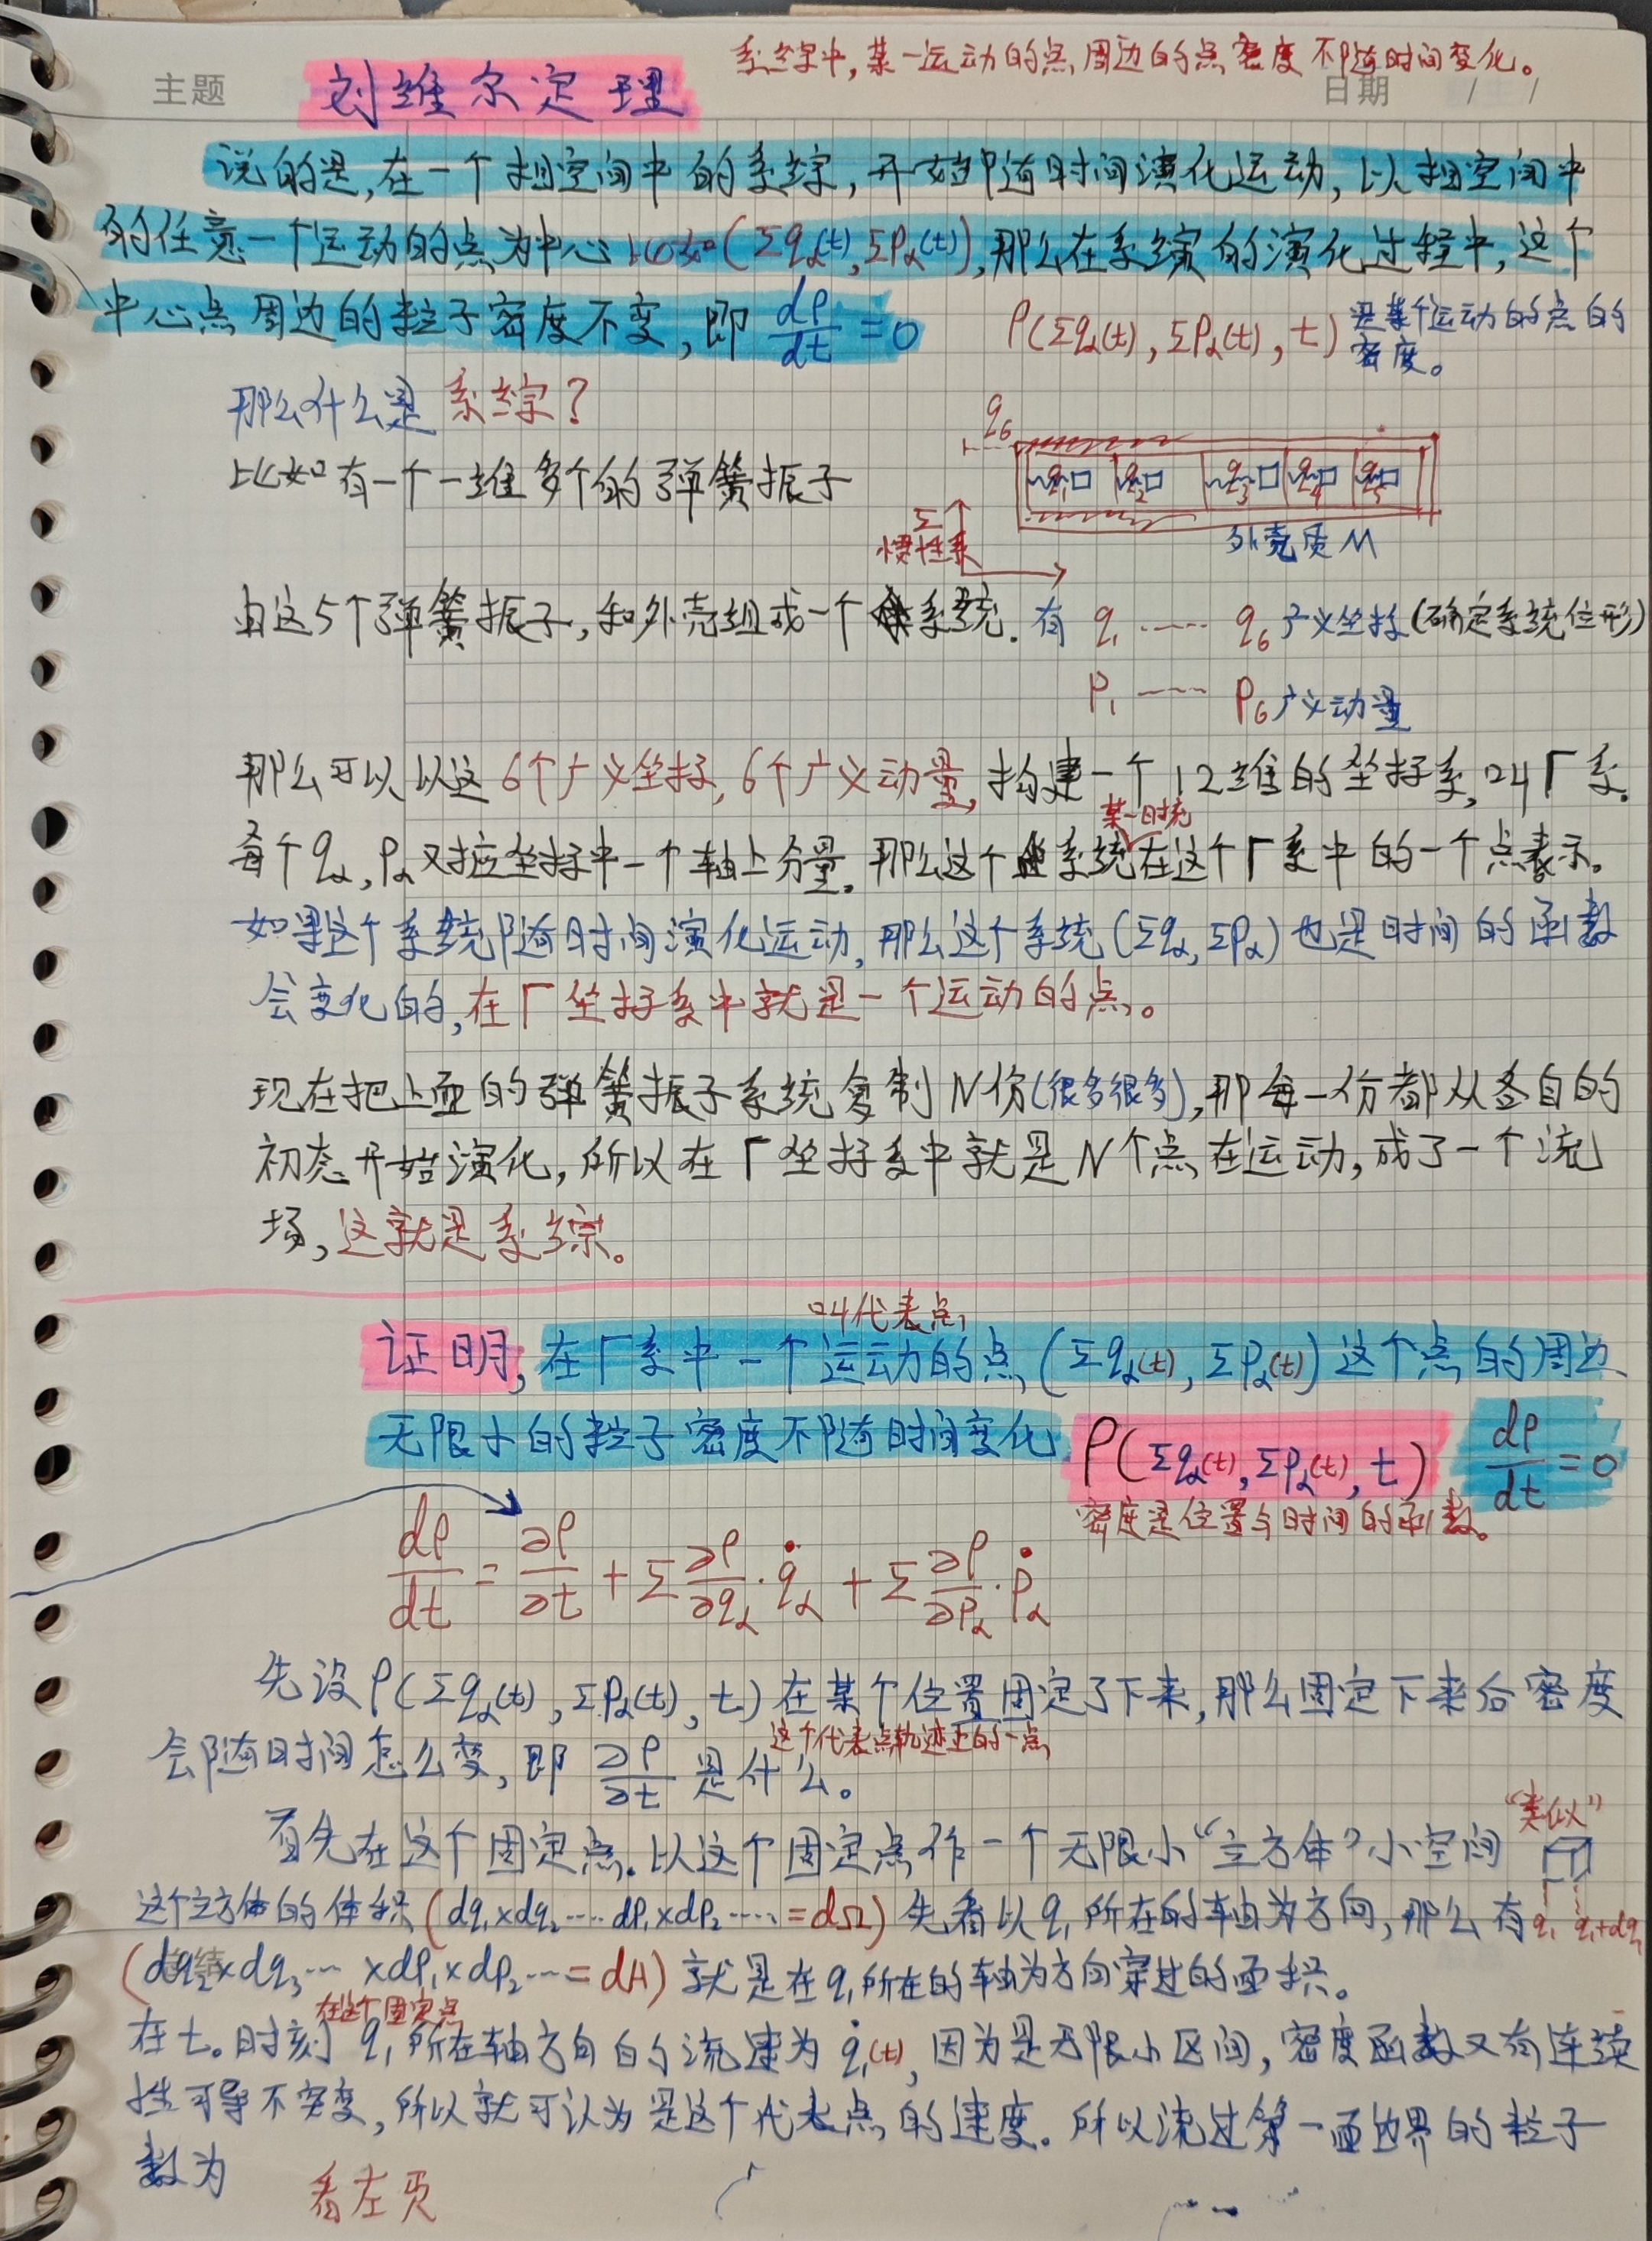 系综中,某一运动的点,周边的点密度不随时间变化。
主题 刘维尔定理 日期 / /
说的是,在一个相空间中的系综,开始即随时间演化运动,以相空间中
的任意一个运动的点为中心 比如(Σqα(t), Σpα(t)),那么在系综的演化过程中,这个
中心点周边的粒子密度不变,即 dρ/dt = 0 ρ(Σqα(t), Σpα(t), t) 是某个运动的点的
密度。
那么什么是 系综?
q6
比如有一个一维多个的弹簧振子
q1 q2 q3 q4 q5
Σ
惯性系
外壳质M
由这5个弹簧振子,和外壳组成一个系统. 有 q1 ---- q6 广义坐标(确定系统位形)
P1 ---- P6 广义动量
那么可以以这6个广义坐标,6个广义动量,构建一个12维的坐标系,叫Γ系.
某一时刻
每个qα,Pα又对应坐标中一个轴上分量.那么这个系统在这个Γ系中的一个点表示。
如果这个系统随时间演化运动,那么这个系统(Σqα,ΣPα)也是时间的函数
会变化的,在Γ坐标系中就是一个运动的点。
现在把上面的弹簧振子系统复制N份(很多很多),那每一份都从各自的
初态开始演化,所以在Γ坐标系中就是N个点在运动,成了一个流
场,这就是系综。
叫代表点,
证明,在Γ系中一个运动的点,(Σqα(t), ΣPα(t))这个点的周边
无限小的粒子密度不随时间变化 ρ(Σqα(t), Σpα(t), t) dρ/dt = 0
密度是位置与时间的函数。
dρ/dt = ∂ρ/∂t + Σ ∂ρ/∂qα · q̇α + Σ ∂ρ/∂Pα · Ṗα
先设ρ(Σqα(t), ΣPα(t), t)在某个位置固定了下来,那么固定下来后密度
这个代表点轨迹上的一点
会随时间怎么变,即 ∂ρ/∂t 是什么。
"类似"
首先在这个固定点.以这个固定点作一个无限小"立方体"小空间
这个立方体的体积(dq1×dq2----dP1×dP2----=dΩ)先看以q1所在的轴为方向,那么有 q1 q1+dq1
(dq2×dq3--- ×dP1×dP2---=dA)就是在q1所在的轴为方向穿过的面积。
在这个固定点
在t。时刻 q1所在轴方向的流速为 q̇1(t),因为是无限小区间,密度函数又有连续
性可导不突变,所以就可认为是这个代表点的速度.所以流过第一面边界的粒子
数为 看左页